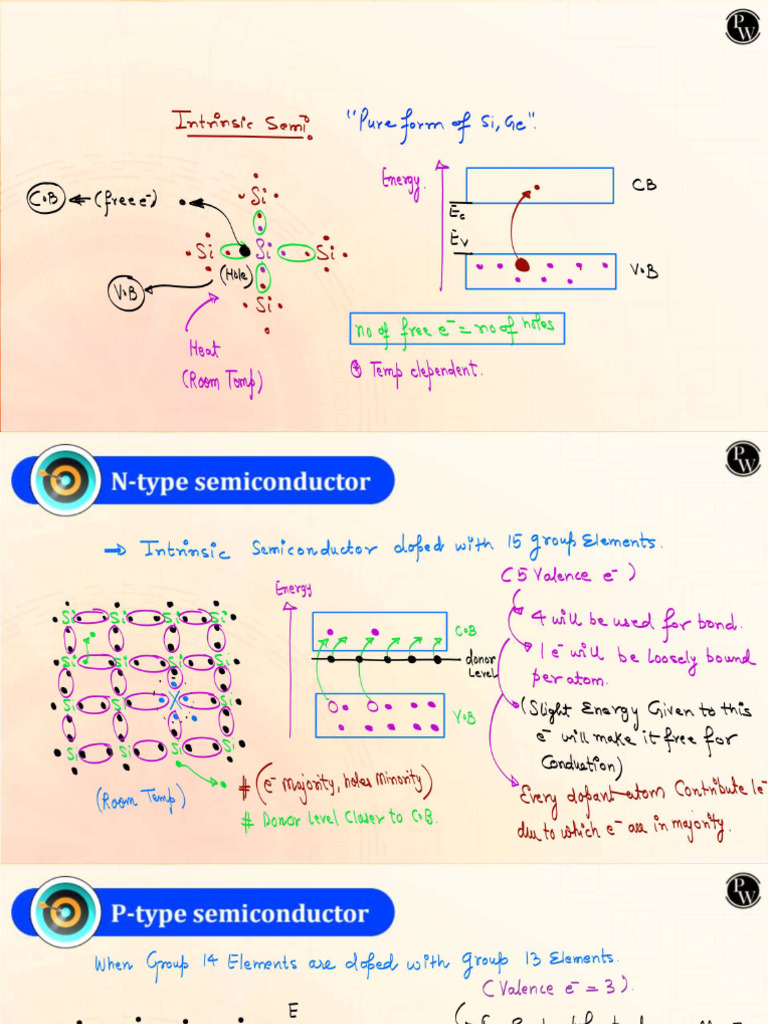 PW
Intrinsic Semi "Pure form of Si, Ge".
C.B ← (free e⁻)
Si
Si Si Si
(Hole)
V.B
Si
Heat
(Room Temp)
Energy
CB
Ec
Ev
V.B
no of free e⁻ = no of holes
* Temp dependent.
PW
N-type semiconductor
→ Intrinsic Semiconductor doped with 15 group Elements.
(5 Valence e⁻)
4 will be used for bond.
1 e⁻ will be loosely bound
per atom.
(Slight Energy Given to this
e⁻ will make it free for
Conduction)
Every dopant atom Contribute 1e⁻
due to which e⁻ are in majority.
Energy
C.B
donor
Level
V.B
Si Si Si Si
Si Si Si Si
Si Si X Si
Si Si Si Si
(Room Temp)
# (e⁻ majority, holes minority)
# Donor Level Closer to C.B.
PW
P-type semiconductor
When Group 14 Elements are doped with group 13 Elements.
(Valence e⁻ = 3).
E